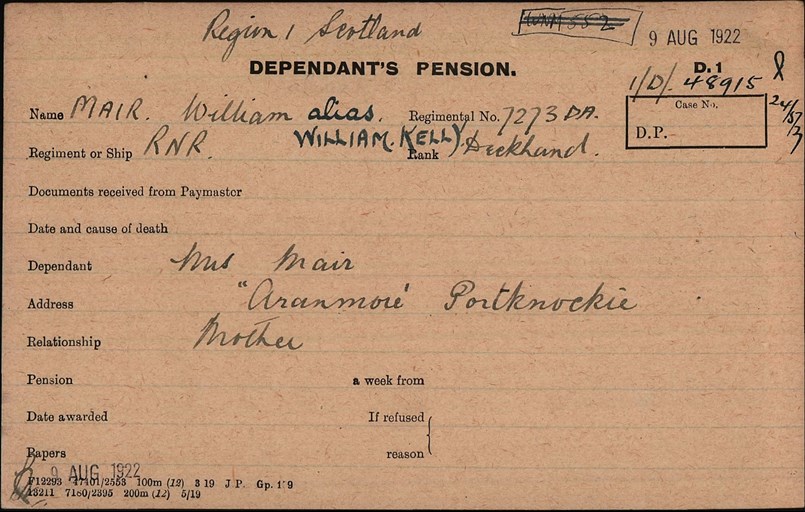 Region 1 Scotland
WNM 552
9 AUG 1922
DEPENDANT'S PENSION.
D.1
1/D/. 48915
Name MAIR. William alias. Regimental No. 7273 DA.
WILLIAM. KELLY.
Case No.
D.P.
Regiment or Ship RNR. Rank Deckhand.
Documents received from Paymaster
Date and cause of death
Dependant Mrs Mair
Address "Aranmore' Portknockie
Relationship Mother
Pension a week from
Date awarded If refused
Papers reason
9 AUG 1922
F12293 47401/2553 100m (12) 3 19 J P. Gp. 1 9
13211 7180/2395 200m (12) 5/19